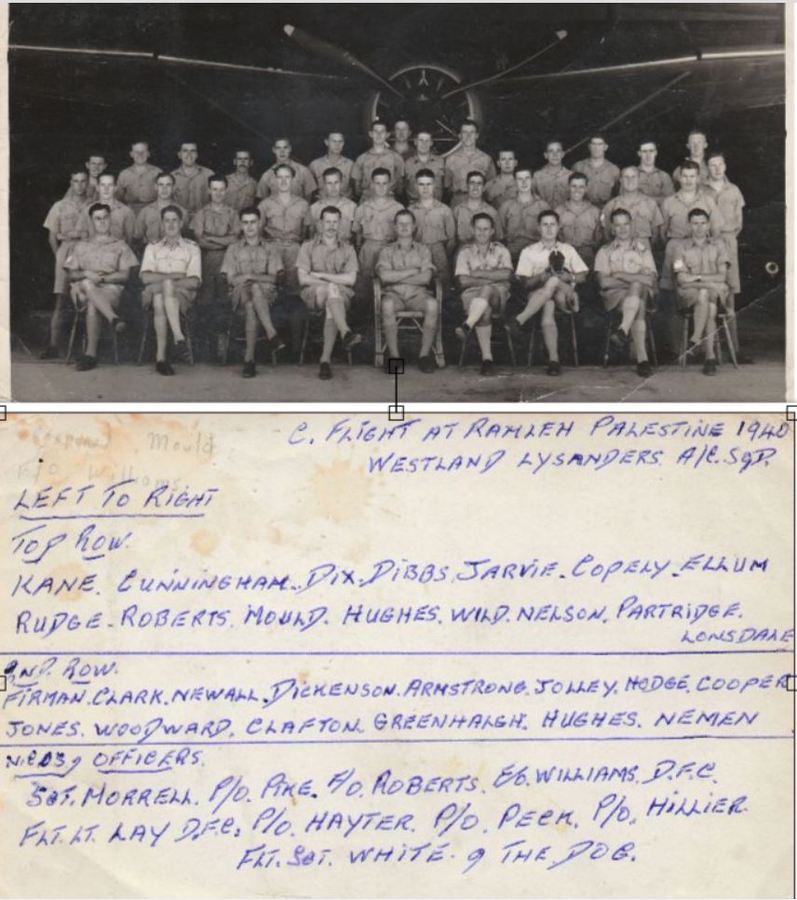 Mould
Williams
C. FLIGHT AT RAMLEH PALESTINE 1940
WESTLAND LYSANDERS A/C. SqD.
LEFT TO RIGHT
TOP ROW.
KANE. CUNNINGHAM. DIX. DIBBS. JARVIE. COPELY. ELLUM
RUDGE. ROBERTS. MOULD. HUGHES. WILD. NELSON. PARTRIDGE.
LONSDALE
2ND. ROW.
FIRMAN. CLARK. NEWALL. DICKENSON. ARMSTRONG. JOLLEY. HODGE. COOPER
JONES. WOODWARD. CLAFTON. GREENHALGH. HUGHES. NEMEN
OFFICERS.
SGT. MORRELL. P/O. PIKE. F/O. ROBERTS. WILLIAMS. D.F.C.
FLT. LT. LAY D.F.C. P/O. HAYTER. P/O. PECK. P/O. HILLIER.
FLT. SGT. WHITE. & THE DOG.